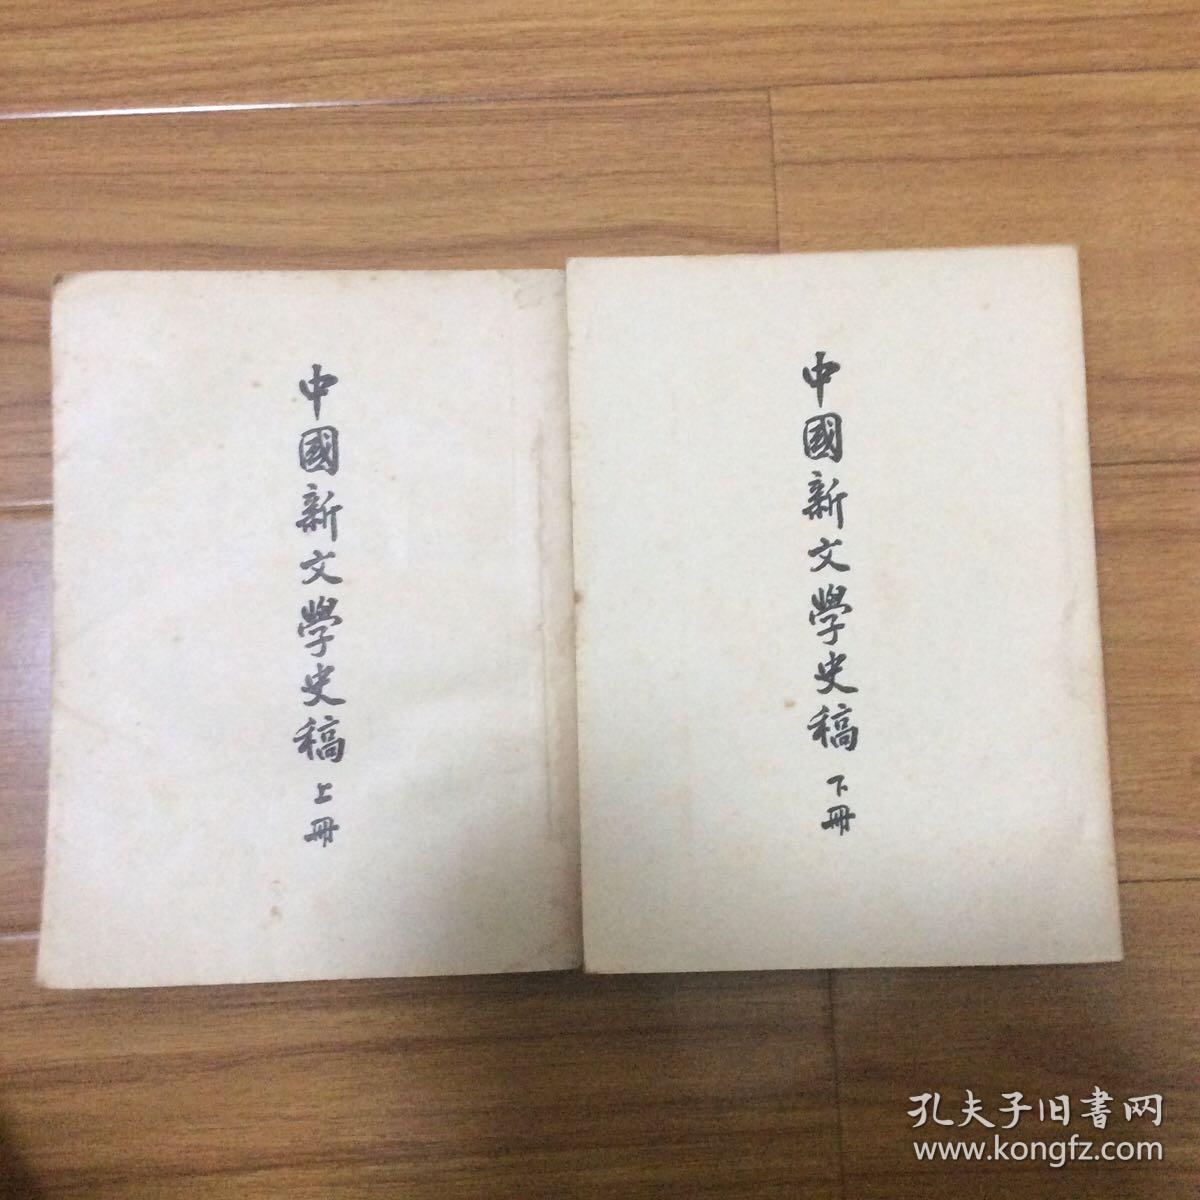 中國新文學史稿 上冊
中國新文學史稿 下冊
孔夫子旧書网
www.kongfz.com